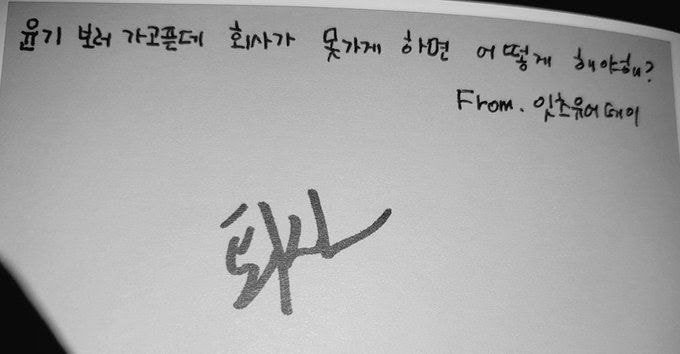 윤기 보러 가고픈데 회사가 못가게 하면 어떻게 해야해?
From. 잇츠유어데이
퇴사